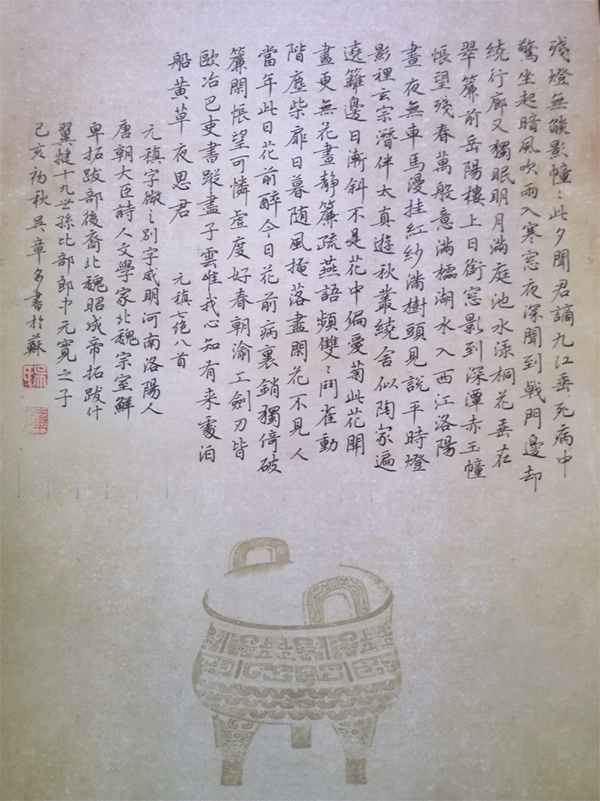 殘燈無燄影幢〻此夕聞君謫九江垂死病中
驚坐起暗風吹雨入寒窓夜深聞到戰門邊却
繞行廊又獨眠明月滿庭池水渌桐花垂在
翠簾前岳陽樓上日銜窓影到深潭赤玉幢
悵望殘春萬般意滿櫺湖水入西江洛陽
晝夜無車馬漫挂紅紗滿樹頭見說平時燈
影裡玄宗潛伴太真遊秋叢繞舍似陶家遍
遶籬邊日漸斜不是花中偏愛菊此花開
盡更無花晝靜簾疏燕語頻雙〻鬥雀動
階塵柴扉日暮随風掩落盡閑花不見人
當年此日花前醉今日花前病裏銷獨倚破
簾閑悵望可憐虛度好春朝渝工劍刃皆
歐冶巴吏書蹤盡子雲惟我心知有来處泊
船黄草夜思君
元稹七絕八首
元稹字微之别字威明河南洛陽人
唐朝大臣詩人文學家北魏宗室鮮
卑拓跋部後裔北魏昭成帝拓跋什
翼犍十九世孫比部郎中元寬之子
己亥初秋吳章多書於蘇